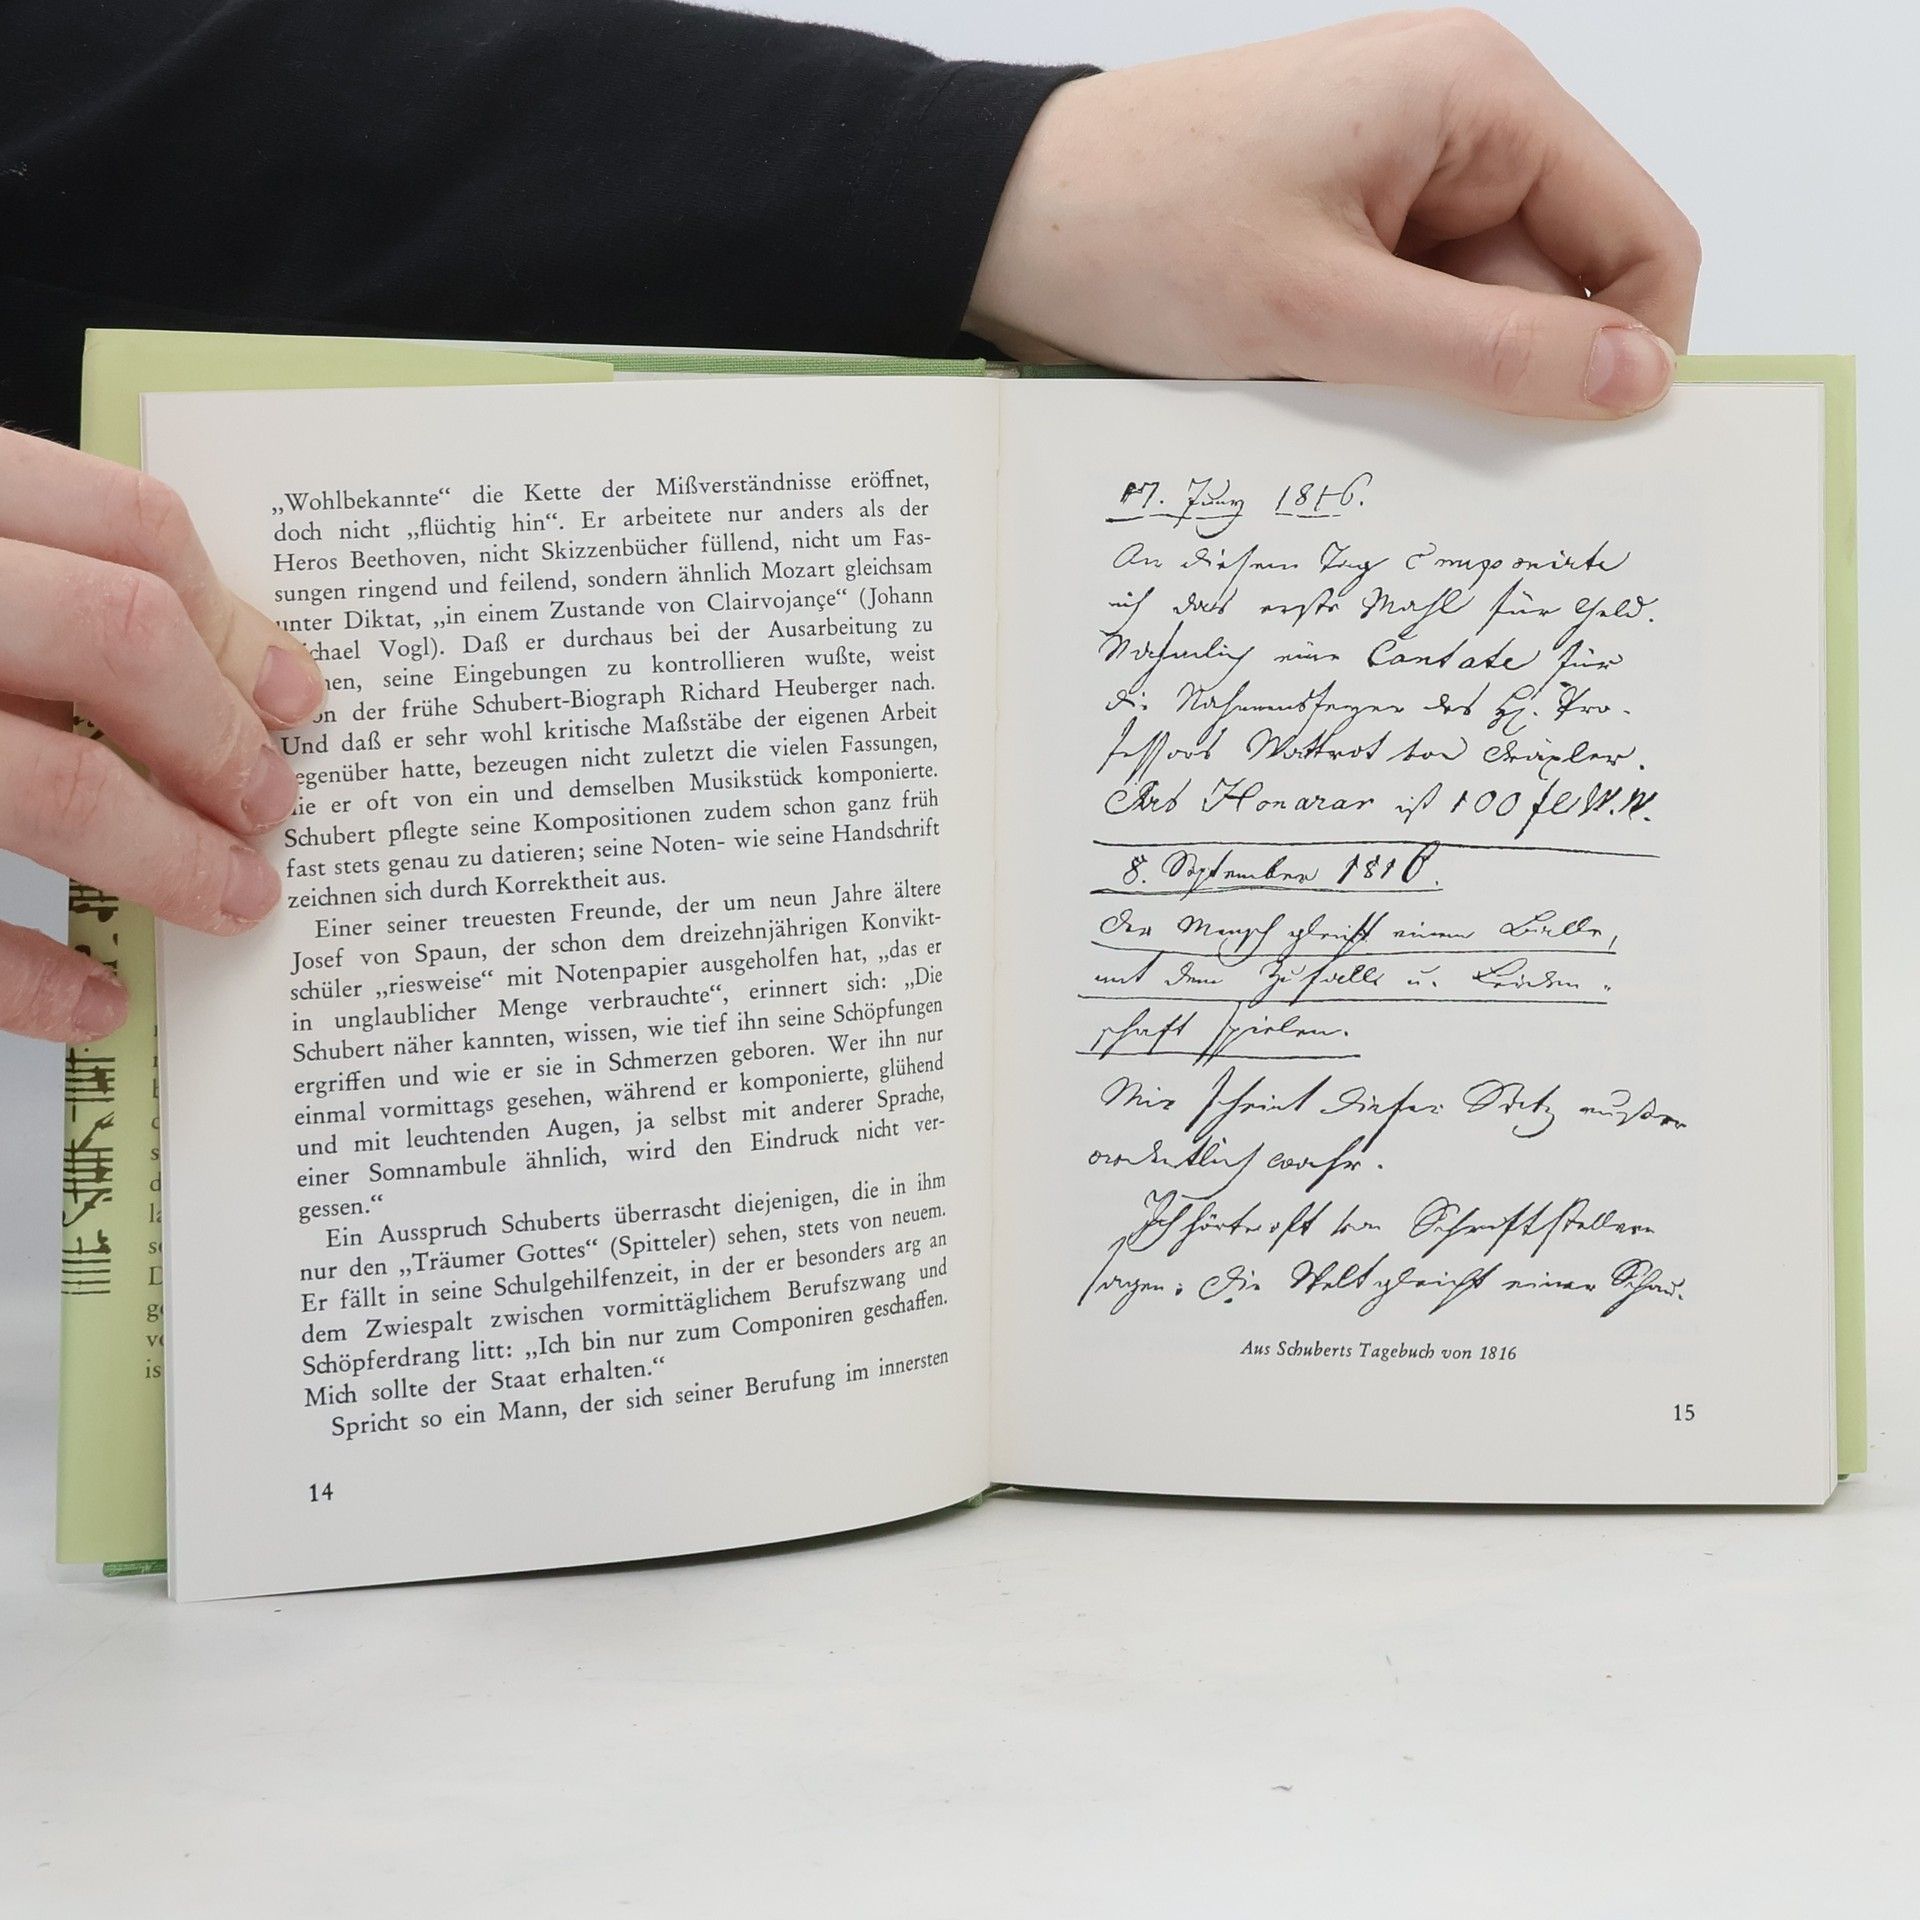 „Wohlbekannte“ die Kette der Mißverständnisse eröffnet,
doch nicht „flüchtig hin“. Er arbeitete nur anders als der
Heros Beethoven, nicht Skizzenbücher füllend, nicht um Fas-
sungen ringend und feilend, sondern ähnlich Mozart gleichsam
unter Diktat, „in einem Zustande von Clairvojançe“ (Johann
chael Vogl). Daß er durchaus bei der Ausarbeitung zu
nen, seine Eingebungen zu kontrollieren wußte, weist
on der frühe Schubert-Biograph Richard Heuberger nach.
Und daß er sehr wohl kritische Maßstäbe der eigenen Arbeit
egenüber hatte, bezeugen nicht zuletzt die vielen Fassungen,
die er oft von ein und demselben Musikstück komponierte.
Schubert pflegte seine Kompositionen zudem schon ganz früh
fast stets genau zu datieren; seine Noten- wie seine Handschrift
zeichnen sich durch Korrektheit aus.
Einer seiner treuesten Freunde, der um neun Jahre ältere
Josef von Spaun, der schon dem dreizehnjährigen Konvikt-
schüler „riesweise“ mit Notenpapier ausgeholfen hat, „das er
in unglaublicher Menge verbrauchte“, erinnert sich: „Die
Schubert näher kannten, wissen, wie tief ihn seine Schöpfungen
ergriffen und wie er sie in Schmerzen geboren. Wer ihn nur
einmal vormittags gesehen, während er komponierte, glühend
und mit leuchtenden Augen, ja selbst mit anderer Sprache,
einer Somnambule ähnlich, wird den Eindruck nicht ver-
gessen.“
Ein Ausspruch Schuberts überrascht diejenigen, die in ihm
nur den „Träumer Gottes“ (Spitteler) sehen, stets von neuem.
Er fällt in seine Schulgehilfenzeit, in der er besonders arg an
dem Zwiespalt zwischen vormittäglichem Berufszwang und
Schöpferdrang litt: „Ich bin nur zum Componiren geschaffen.
Mich sollte der Staat erhalten.“
Spricht so ein Mann, der sich seiner Berufung im innersten
14
17. Juny 1816.
An diesem Tag componirte
ich das erste Mahl für Geld.
Nähmlich eine Cantate für
die Nahmensfeyer des H. Pro-
fessors Wattrot von Dräxler.
Das Honorar ist 100 fl W.W.
8. September 1816.
Der Mensch gleicht einem Balle,
mit dem Zufall u. Leiden-
schaft spielen.
Mir scheint dieser Satz außer
ordentlich wahr.
Ich hörte oft von Schriftstellern
sagen: Die Welt gleicht einer Schau-
Aus Schuberts Tagebuch von 1816
15